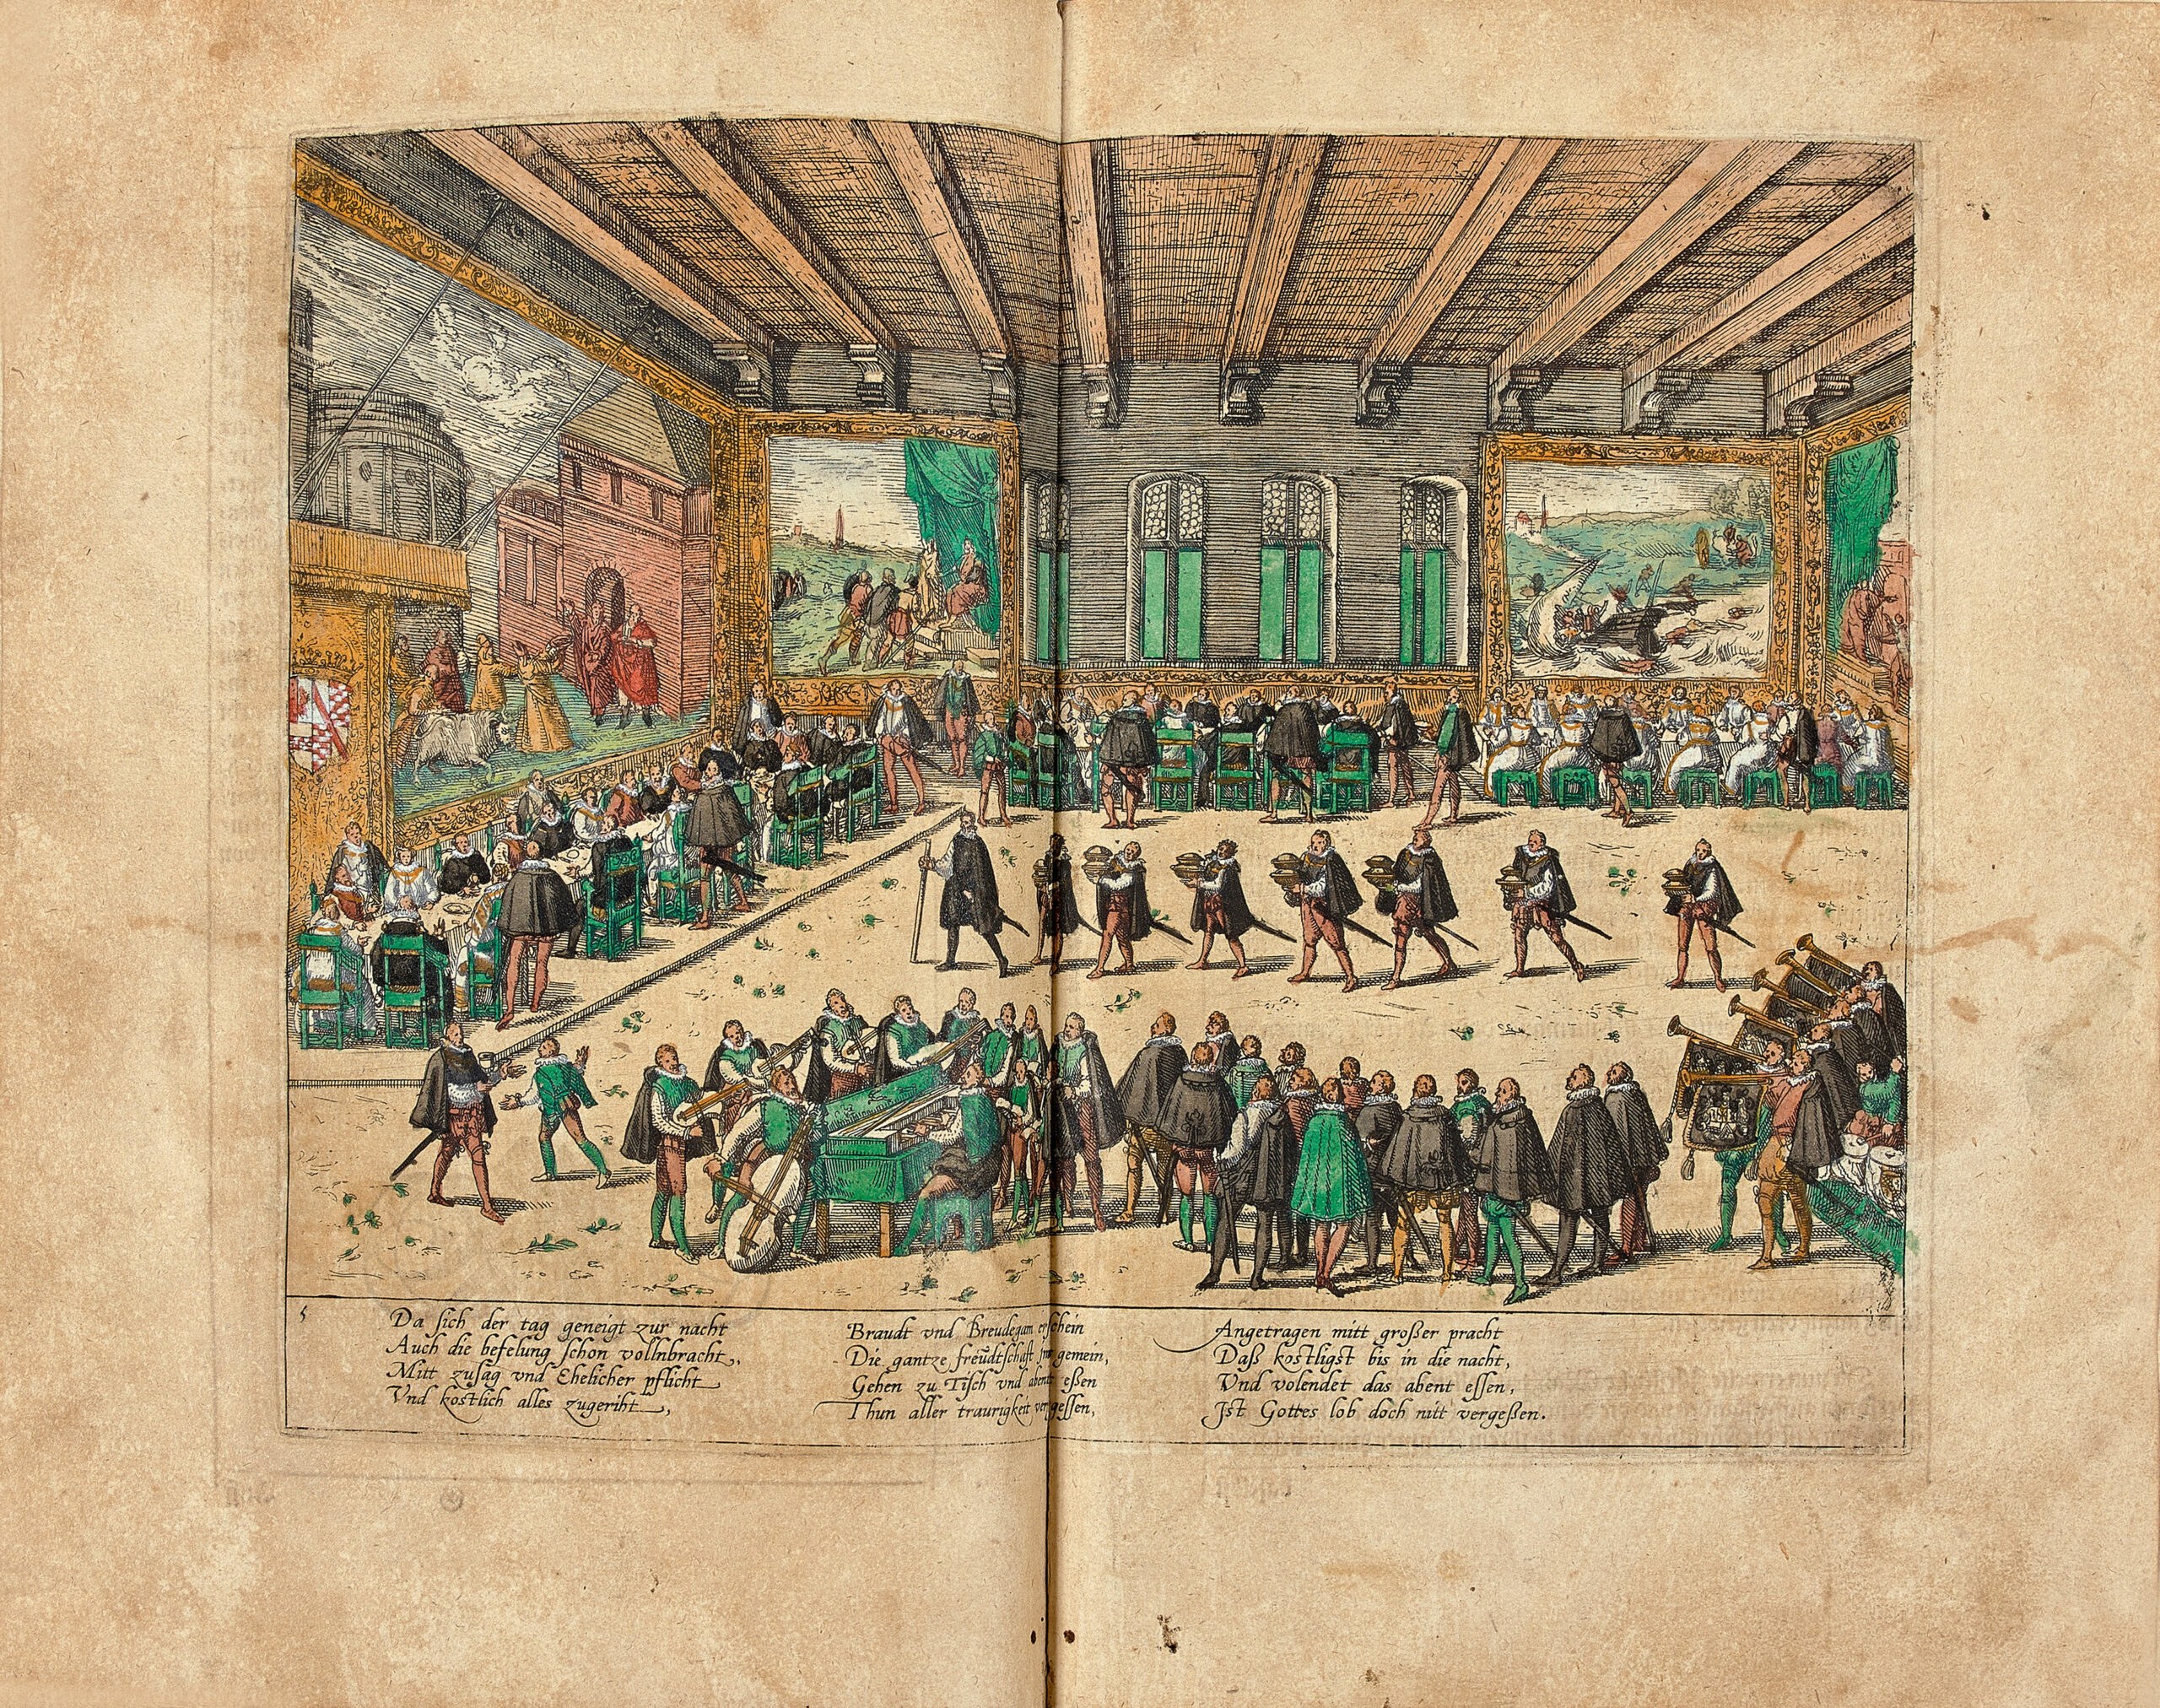 5
Da sich der tag geneigt zur nacht
Auch die befelung schon vollnbracht,
Mitt zusag vnd Ehelicher pflicht
Vnd kostlich alles zugeriht,
Braudt vnd Breudegam erschein
Die gantze freudtschaft in gemein,
Gehen zu Tisch vnd abent eßen
Thun aller traurigkeit vergessen,
Angetragen mitt großer pracht
Daß kostligst bis in die nacht,
Vnd volendet das abent essen,
Jst Gottes lob doch nitt vergeßen.